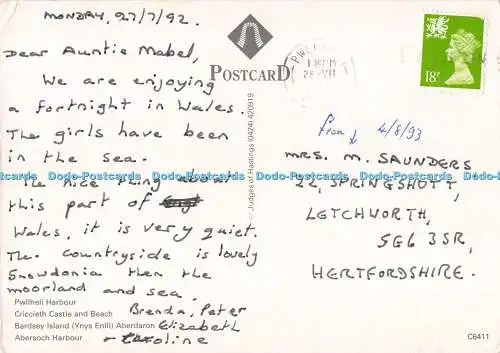 MONDAY, 27/7/92.
Dear Auntie Mabel,
We are enjoying
a fortnight in Wales.
The girls have been
in the sea.
The nice thing about
this part of
Wales, it is very quiet.
The countryside is lovely
Snowdonia then the
moorland and sea.
Brenda, Peter
Elizabeth
+ Caroline
Pwllheli Harbour
Criccieth Castle and Beach
Bardsey Island (Ynys Enlli) Aberdaron
Abersoch Harbour
POSTCARD
© Judges of Hastings (0424) 420919
1 30 PM
28 VII
18P
from 4/8/93
MRS. M. SAUNDERS
22, SPRINGSHOTT,
LETCHWORTH,
SG6 3SR,
HERTFORDSHIRE.
C6411
Dodo-Postcards Dodo-Postcards Dodo-Postcards Dodo-Postcards Dodo-Postcards